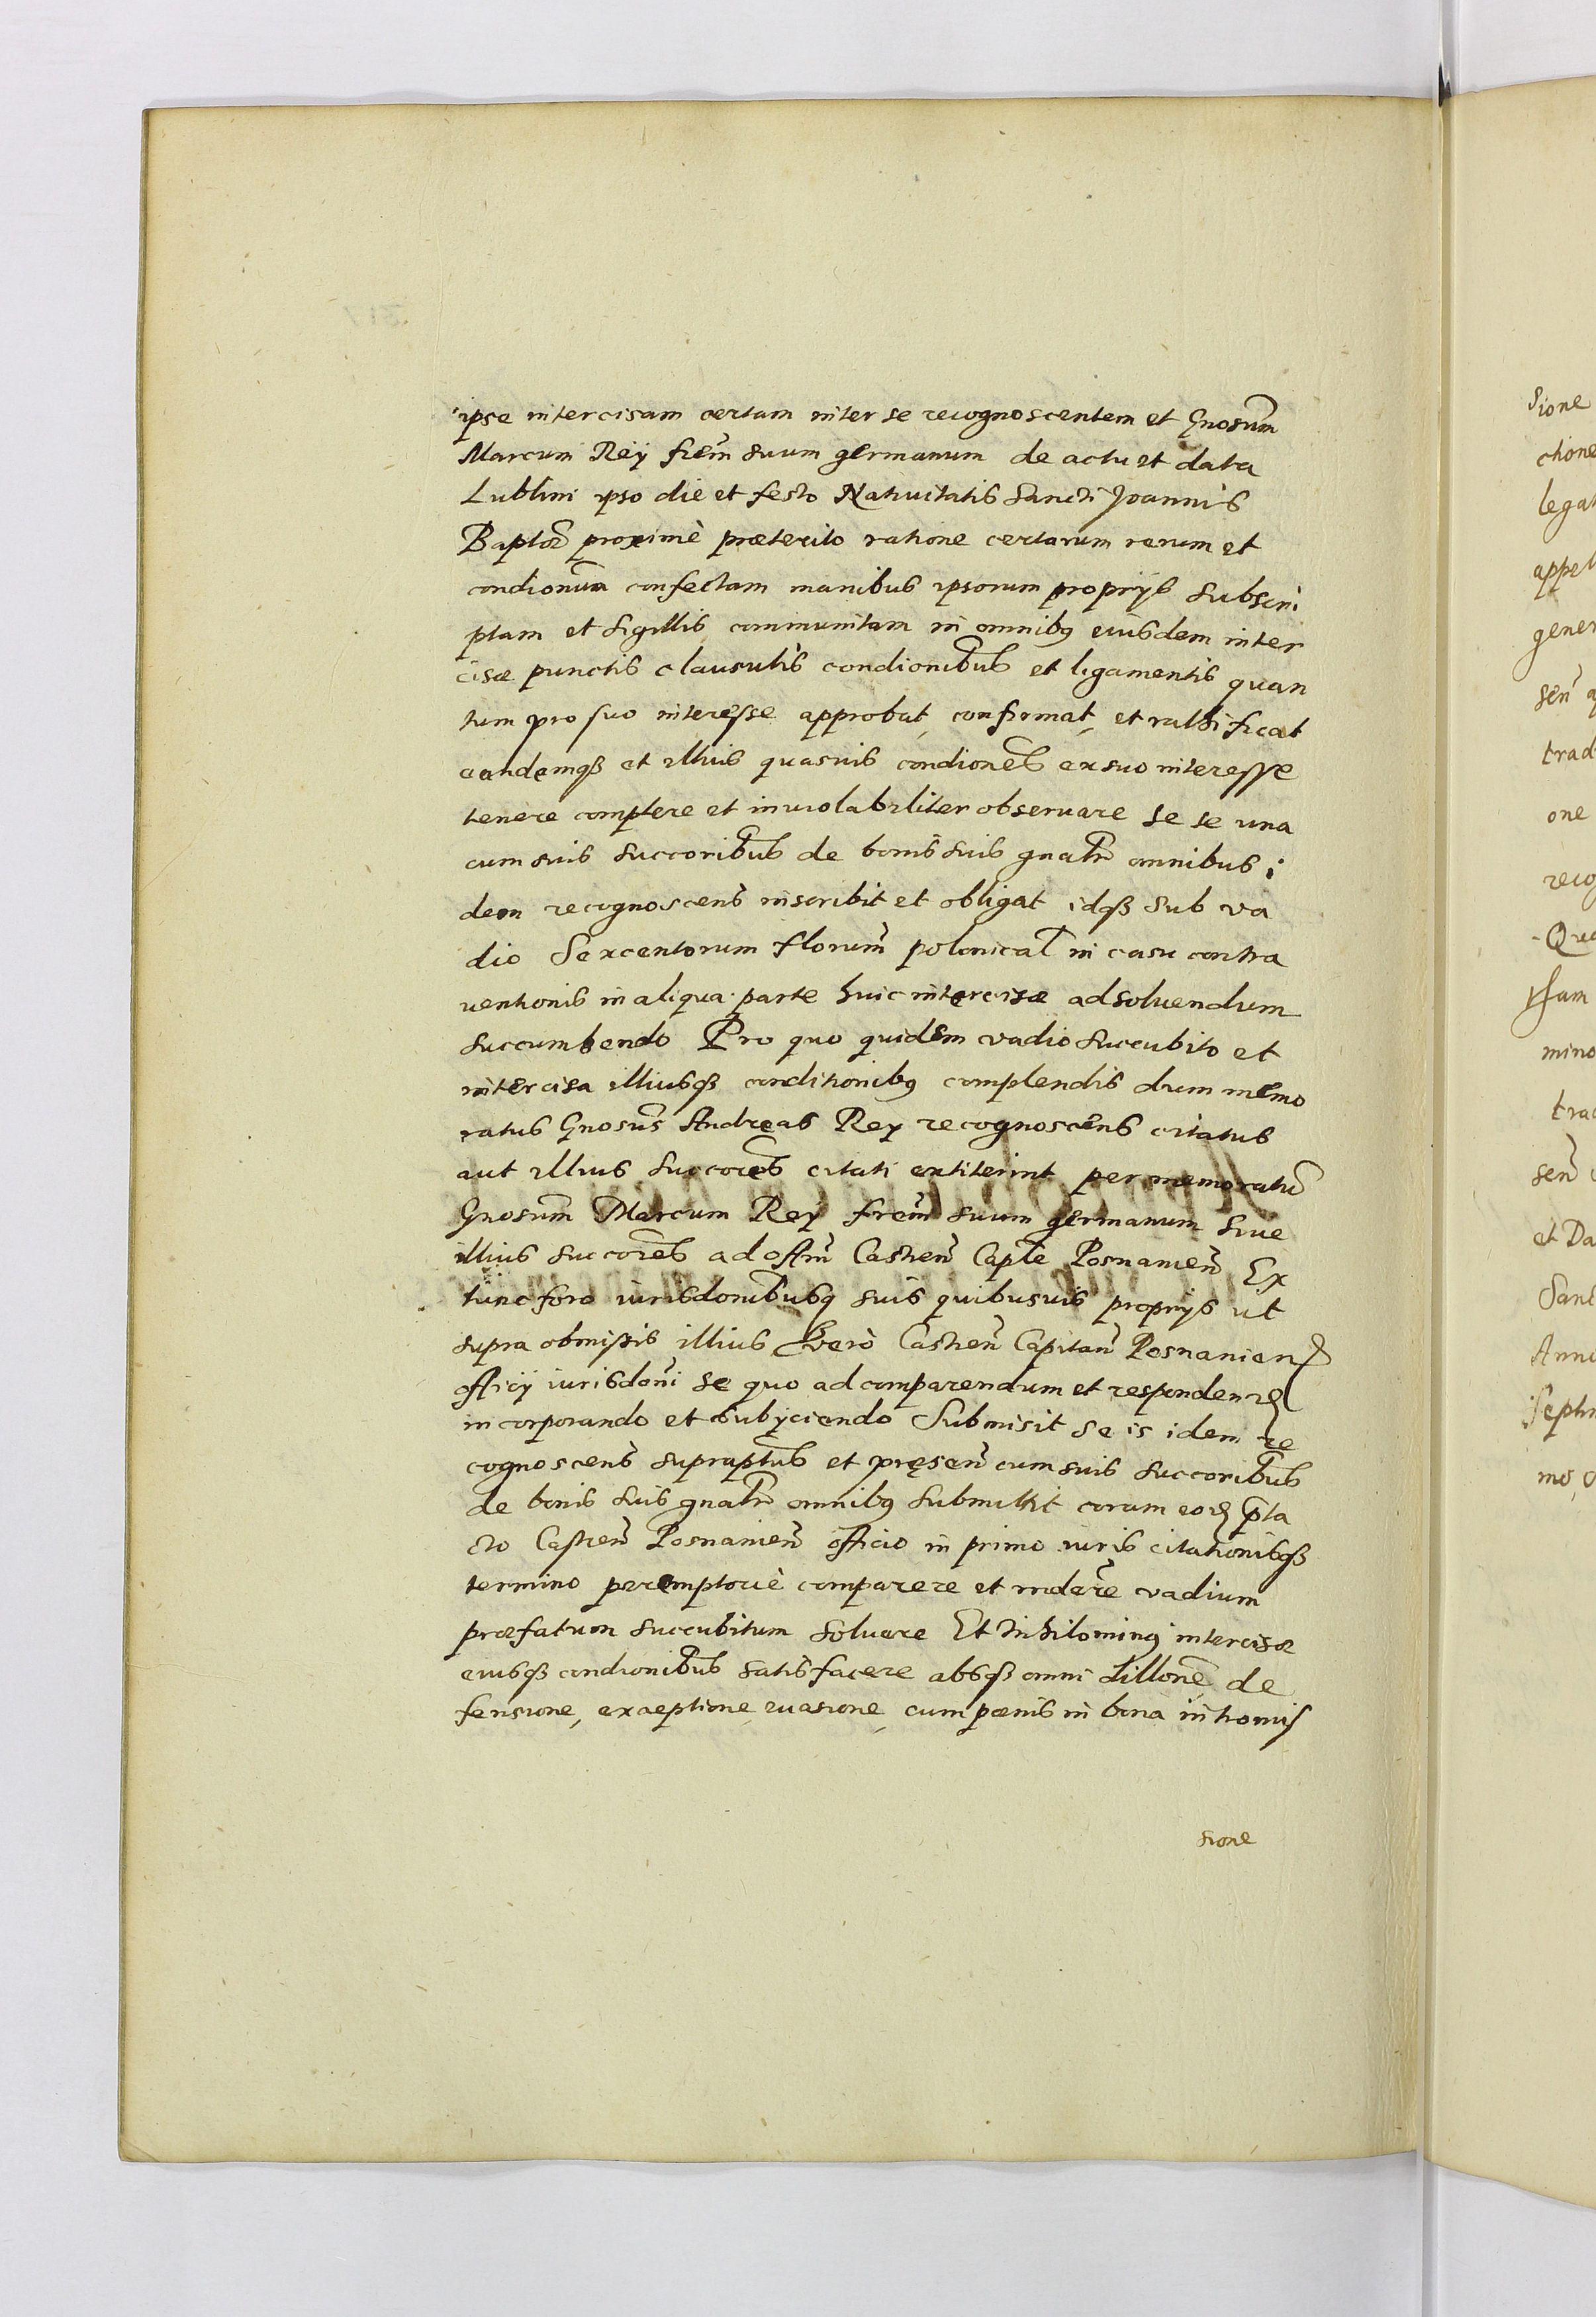 ipse intercisam certam inter se recognoscentem et Gnosum
Marcum Rey frem suum germanum de actu et data
Lublini ipso die et festo Natiuitatis Sancti Joannis
Baptae proximè præterito ratione certarum rerum et
condionum confectam manibus ipsorum proprys subscri
ptam et sigillis communitam in omnibq eiusdem inter
cisæ punctis clausulis condionibus et ligamentis quan
tum pro suo interesse approbat, confirmat, et rathificat
eandemqß et illius quasuis condiones ex suo interesse
tenere complere et inuiolabiliter obseruare se se una
cum suis succoribus de bonis suis gnalr omnibus i
dem recognoscens inscribit et obligat idqß sub va
dio Sexcentorum florum polonical in casu contra
uentionis in aliqua parte huic intercisæ ad soluendum
succumbendo Pro quo quidem vadio succubito et
intercisa illiusqß conditionibq complendis dum memo
ratus Gnosus Andreas Rey recognoscens citatus
aut illius succores citati extiterint per memoratu
Gnosum Marcum Rey frem suum germanum siue
illius succores ad offm Castren Caplē Posnanien Ex
tunc foro iurisdonibusq suis quibusuis proprys ut
supra obmissis illius verò Castren Capitan Posnanien
officy iurisdoni se quo ad comparendum et responden
incorporando et subyciendo Submisit se is idem re
cognoscens supraptus et præsen cum suis succoribus
de bonis suis gnalr omnibq submittit coram eod pta
cto Castren Posnanien officio in primo iuris citationisqß
termino peremptoriè comparere et rndere vadium
præfatum succubitum soluere Et Nihilominq intercisæ
eiusqß condionibus satisfacere absqß omni dillone de
fensione, exceptione, euasione, cum pænis in bona intromis
sione
sione
legat
appel
gener
sen
trad
one
mino
sen
et Da
Sanc
Anno
Septi
mo